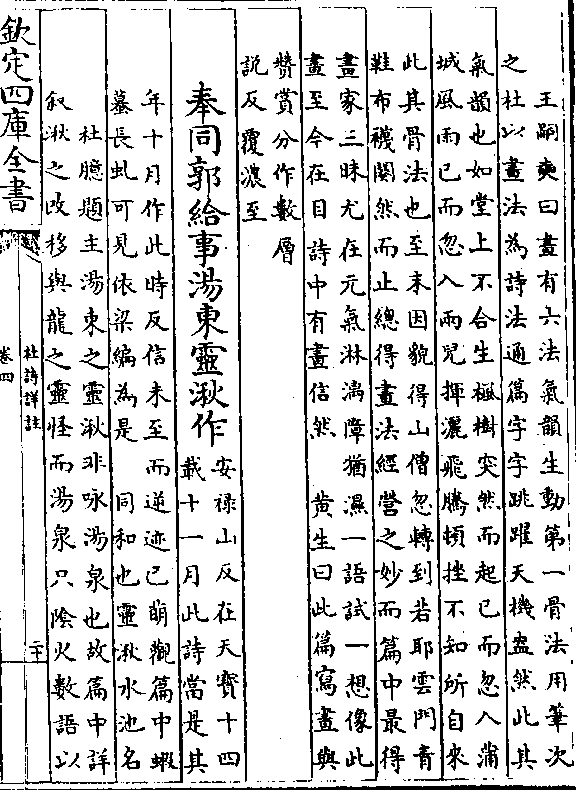 王嗣奭曰畫有六法氣韻生動第一骨法用筆次
之杜以畫法為詩法通篇字字跳躍天機盎然此其
氣韻也如堂上不合生楓樹突然而起已而忽入蒲
城風雨已而忽入兩兒揮灑飛騰頓挫不知所自來
此其骨法也至末因貌得山僧忽轉到若耶雲門青
鞋布襪闋然而止總得畫法經營之妙而篇中最得
畫家三昧尤在元氣淋漓障猶濕一語試一想像此
畫至今在目詩中有畫信然　黄生曰此篇寫畫與
贊賞分作數層
說反覆濃至
奉同郭給事湯東靈湫作
安禄山反在天寶十四
載十一月此詩當是其
年十月作此時反信未至而逆迹已萌觀篇中蝦
蟇長虬可見依梁編為是　同和也靈湫水池名
杜臆題主湯東之靈湫非咏湯泉也故篇中詳
叙湫之改移與龍之靈怪而湯泉只陰火數語以
欽定四庫全書
杜詩詳註
卷四
二十